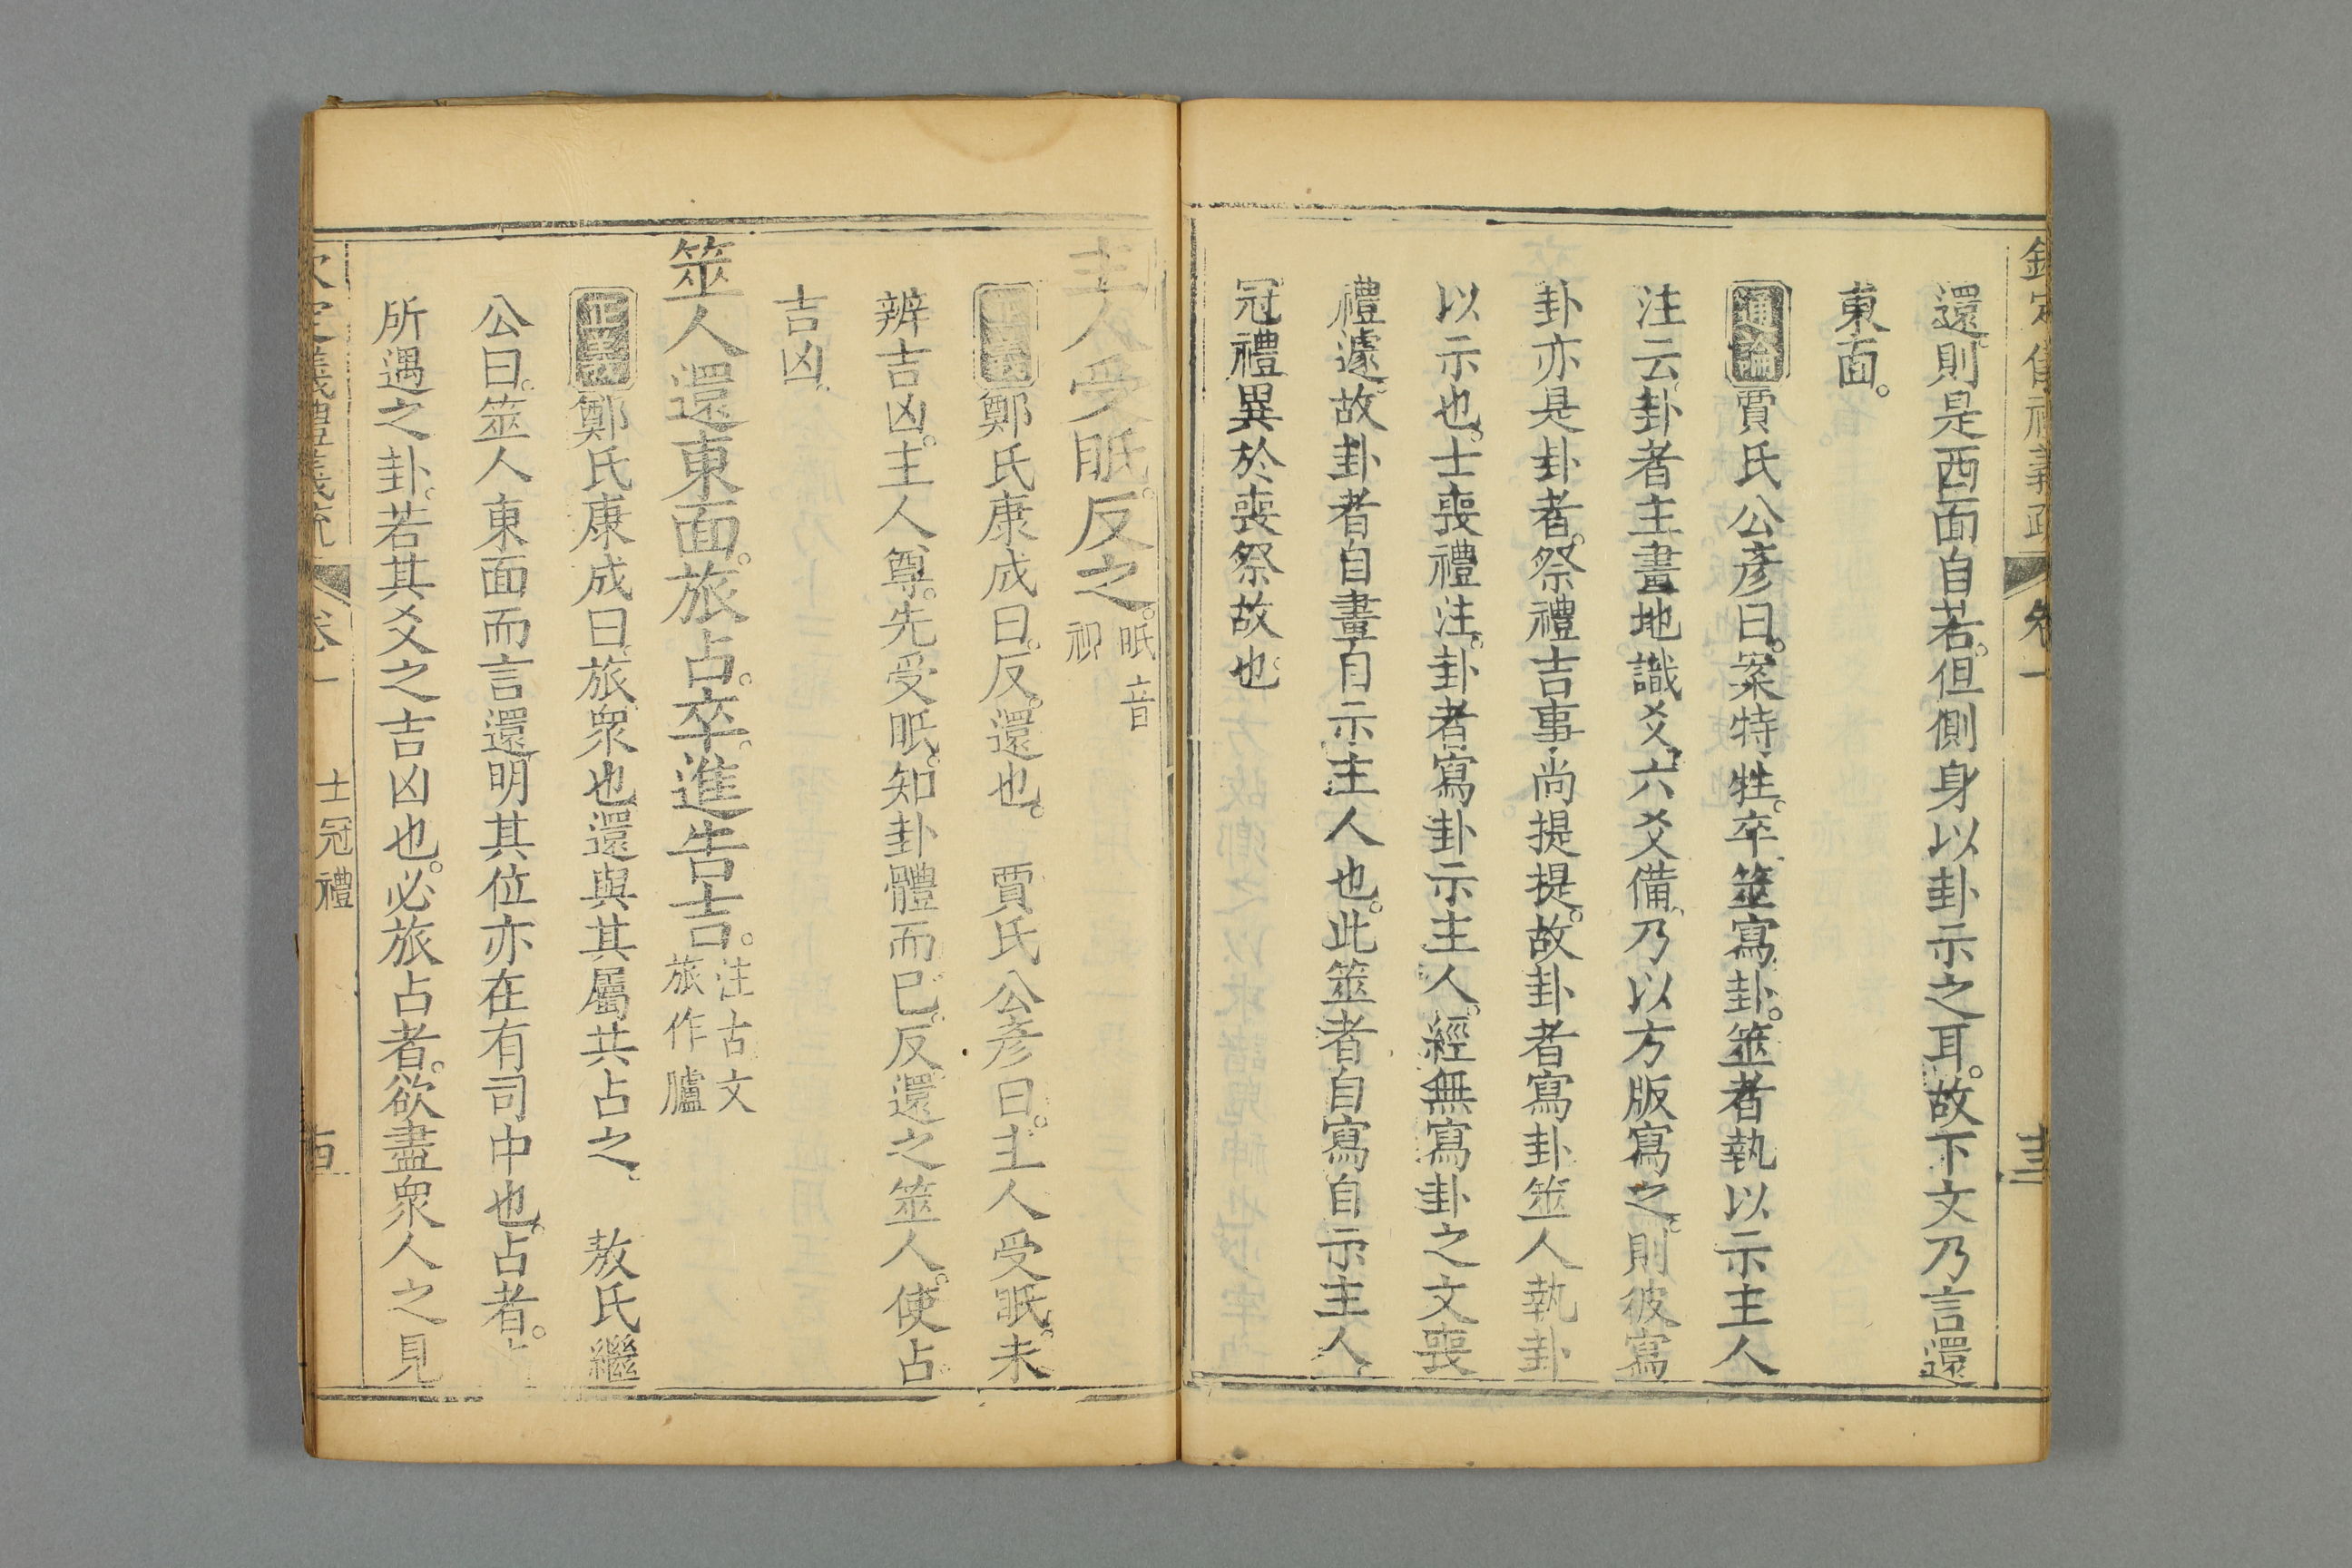 還則是西面自若。但側身以卦示之耳。故下文乃言還
東面。
通論賈氏公彥曰。案特牲。卒筮寫卦。筮者執以示主人
注云卦者主畫地識爻。六爻備。乃以方版寫之。則彼寫
卦亦是卦者。祭禮吉事尚提提。故卦者寫卦筮人執卦
以示也。士喪禮注。卦者寫卦示主人。經無寫卦之文喪
禮遽。故卦者自畫自示主人也。此筮者自寫自示主人
冠禮異於喪祭故也
卷一
主人受眂。反之。眂音
視
正義鄭氏康成曰。反。還也。 賈氏公彥曰。主人受眂。未
辨吉凶。主人尊。先受眂。知卦體而已。反還之筮人。使占
吉凶。
筮人還東面。旅占。卒。進告吉。注古文
旅作臚
正義鄭氏康成曰。旅衆也。還與其屬共占之。 敖氏繼
公曰。筮人東面而言還明其位亦在有司中也。占者。
所遇之卦。若其爻之吉凶也。必旅占者。欲盡衆人之見
欽定儀禮義疏
卷一
士冠禮